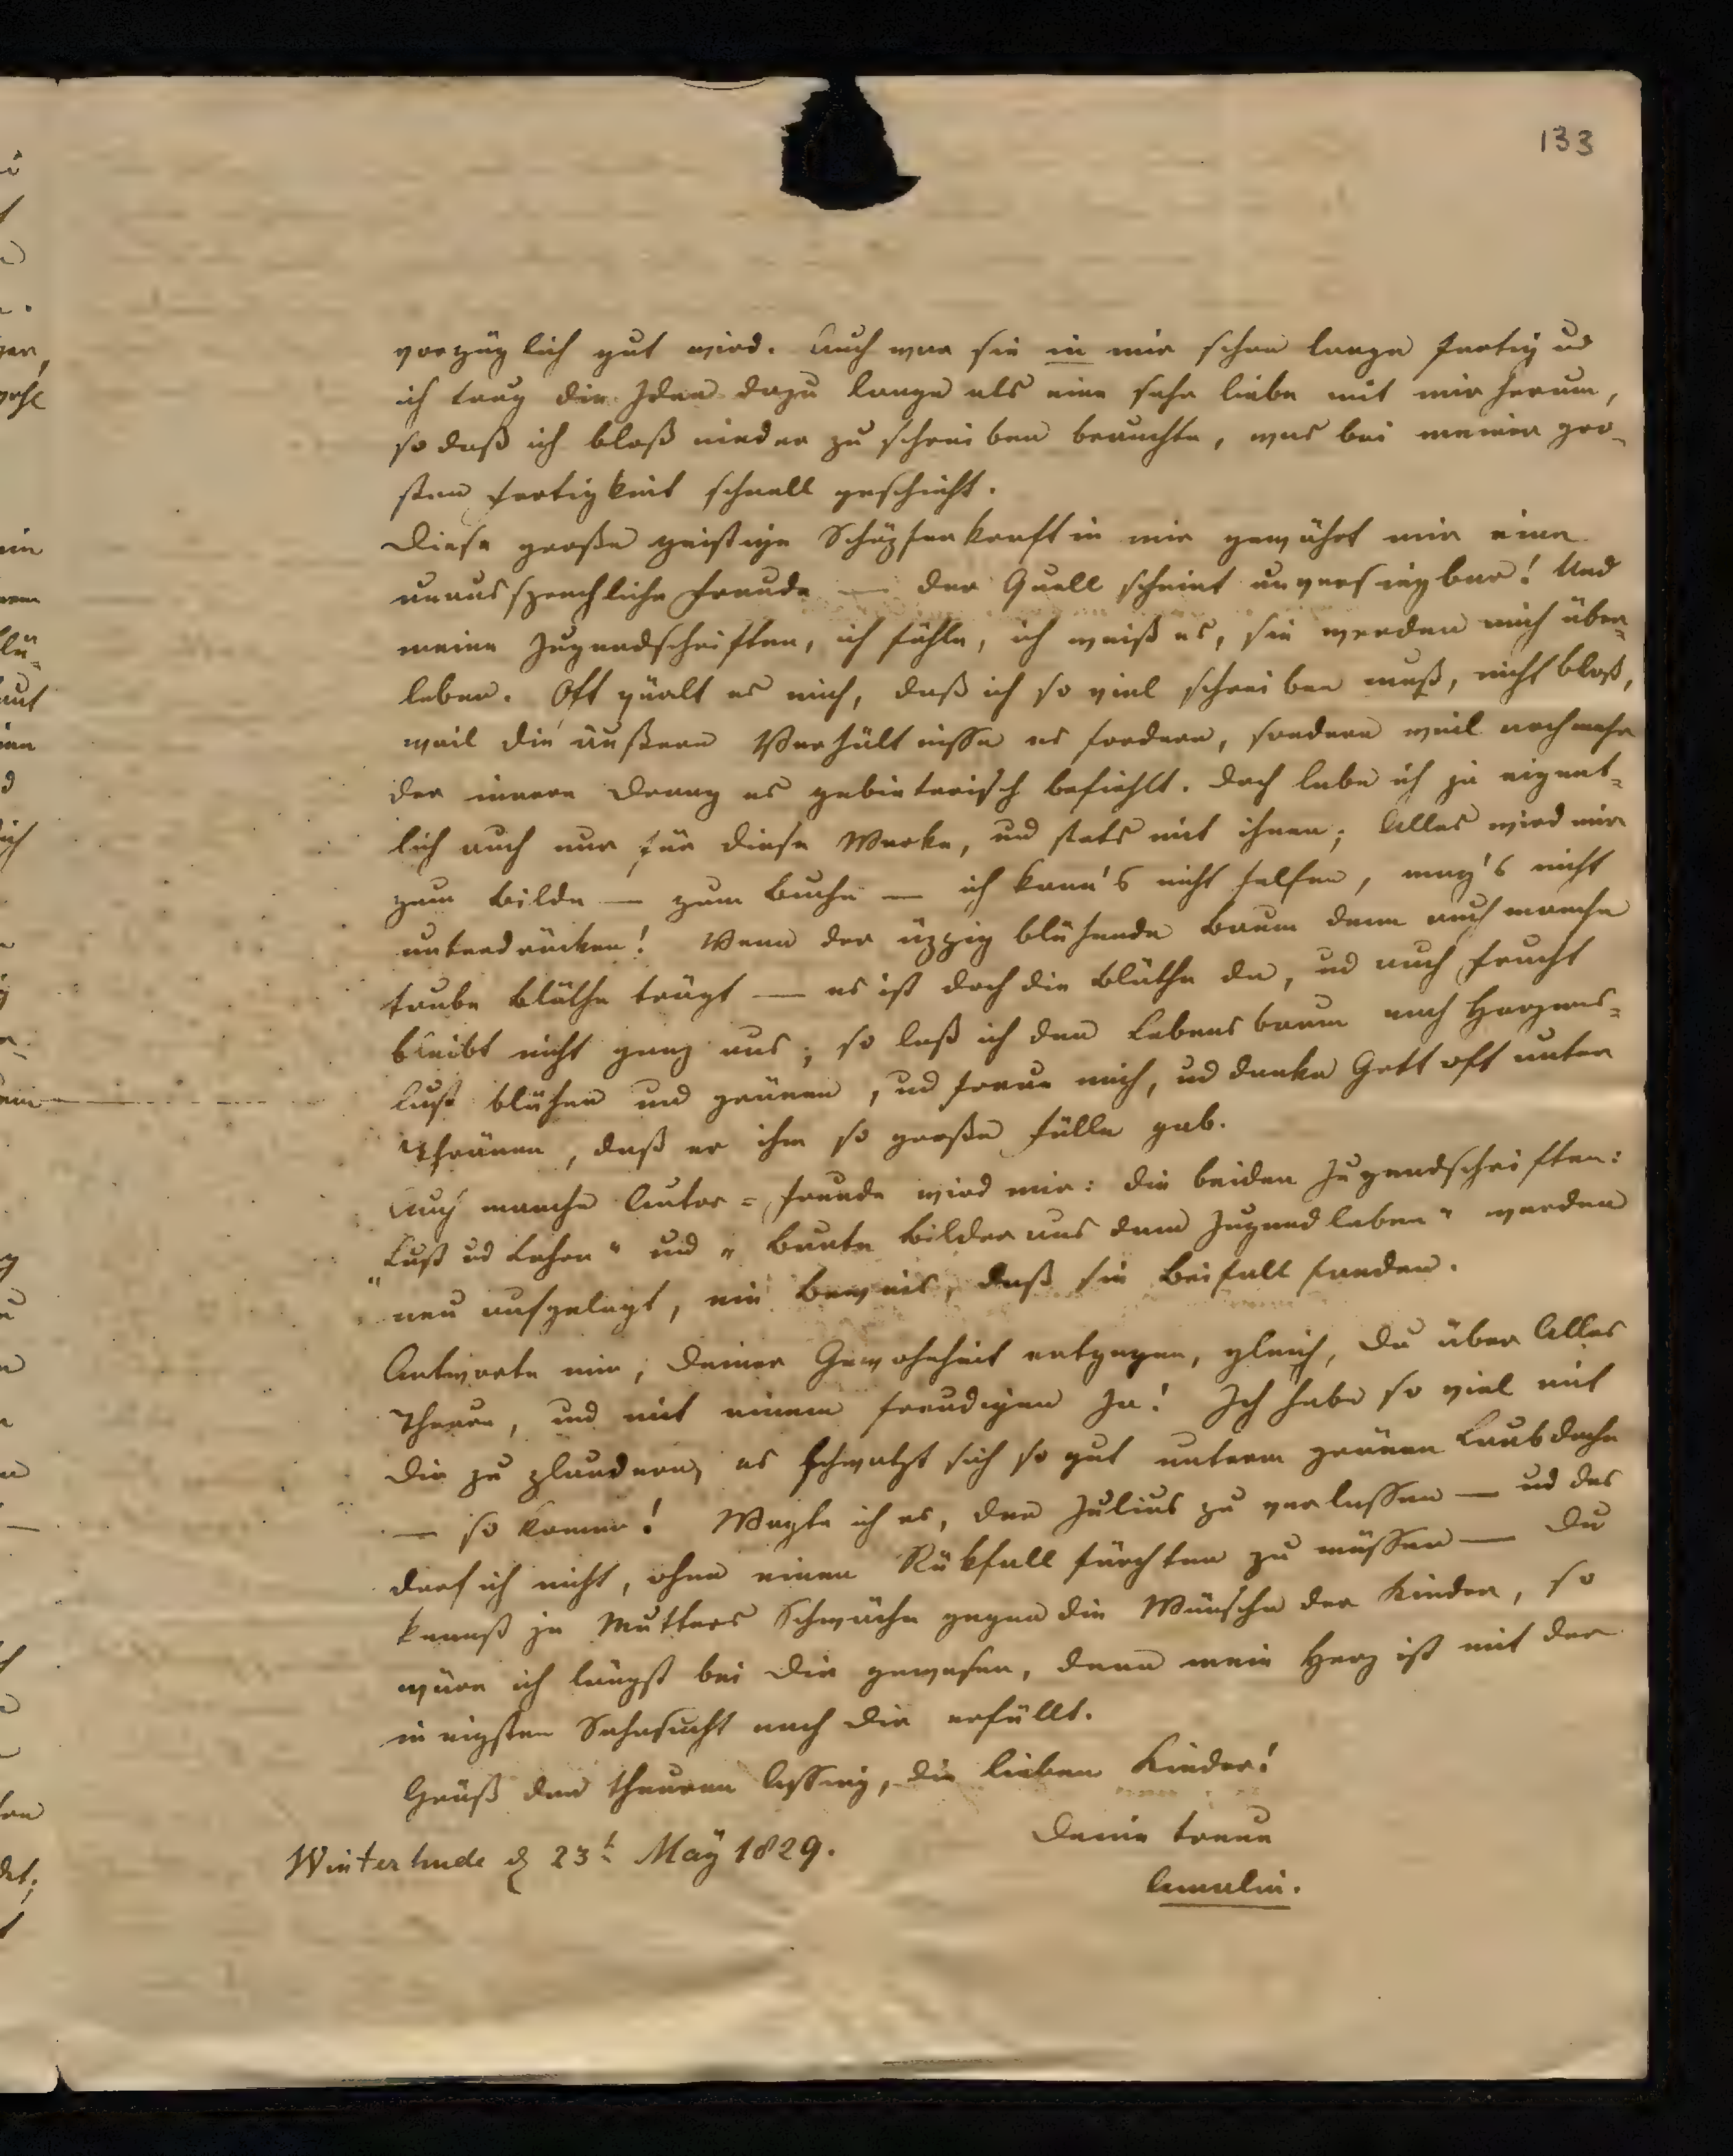 133
vorzüglich gut wird. Auch war sie in mir schon lange fertig ud
ich trug die Idee dazu lange als eine sehr liebe mit mir herum,
so daß ich bloß nieder zu schreiben brauchte, was bei meiner gro-
ßen Fertigkeit schnell geschieht.
Diese große geistige Schöpferkraft in mir gewährt mir eine
unaussprechliche Freude — der Quell scheint unversiegbar! Und
meine Jugendschriften, ich fühle, ich weiß es, sie werden mich über-
leben. Oft quält es mich, daß ich so viel schreiben muß, nicht bloß,
weil die äußern Verhältnisse es fordern, sondern weil noch mehr
der innere Drang es gebieterisch befiehlt. Doch lebe ich ja eigent-
lich auch nur für diese Werke, und stets mit ihnen; Alles wird mir
zum Bilde — zum Buche — ich kann's nicht helfen, mag's nicht
unterdrücken! Wenn der üppig blühende Baum denn auch manche
taube Blüthe trägt — es ist doch die Blüthe da, ud auch Frucht
bleibt nicht ganz aus; so laß ich den Lebensbaum nach Herzens-
lust blühen und grünen, ud freue mich, ud danke Gott oft unter
Thränen, daß er ihm so große Fülle gab.
Auch manche Autor-Freude wird mir: die beiden Jugendschriften:
„Lust ud Lehre" und „Bunte Bilder aus dem Jugendleben" werden
neu aufgelegt, ein Beweis, daß sie Beifall fanden.
Antworte mir, Deiner Gewohnheit entgegen, gleich, Du über Alles
Theure, und mit einem freudigen Ja! Ich habe so viel mit
Dir zu plaudern, es schwatzt sich so gut unterm grünen Laubdache
— so komm! Wagte ich es, den Julius zu verlassen — ud das
darf ich nicht, ohne einen Rükfall fürchten zu müssen — Du
kennst ja Mutters Schwäche gegen die Wünsche der Kinder, so
wäre ich längst bei Dir gewesen, denn mein Herz ist mit der
innigsten Sehnsucht nach Dir erfüllt.
Grüß den theuren Assing, die lieben Kinder!
Deine treue
Amalie.
Winterhude d 23t May 1829.